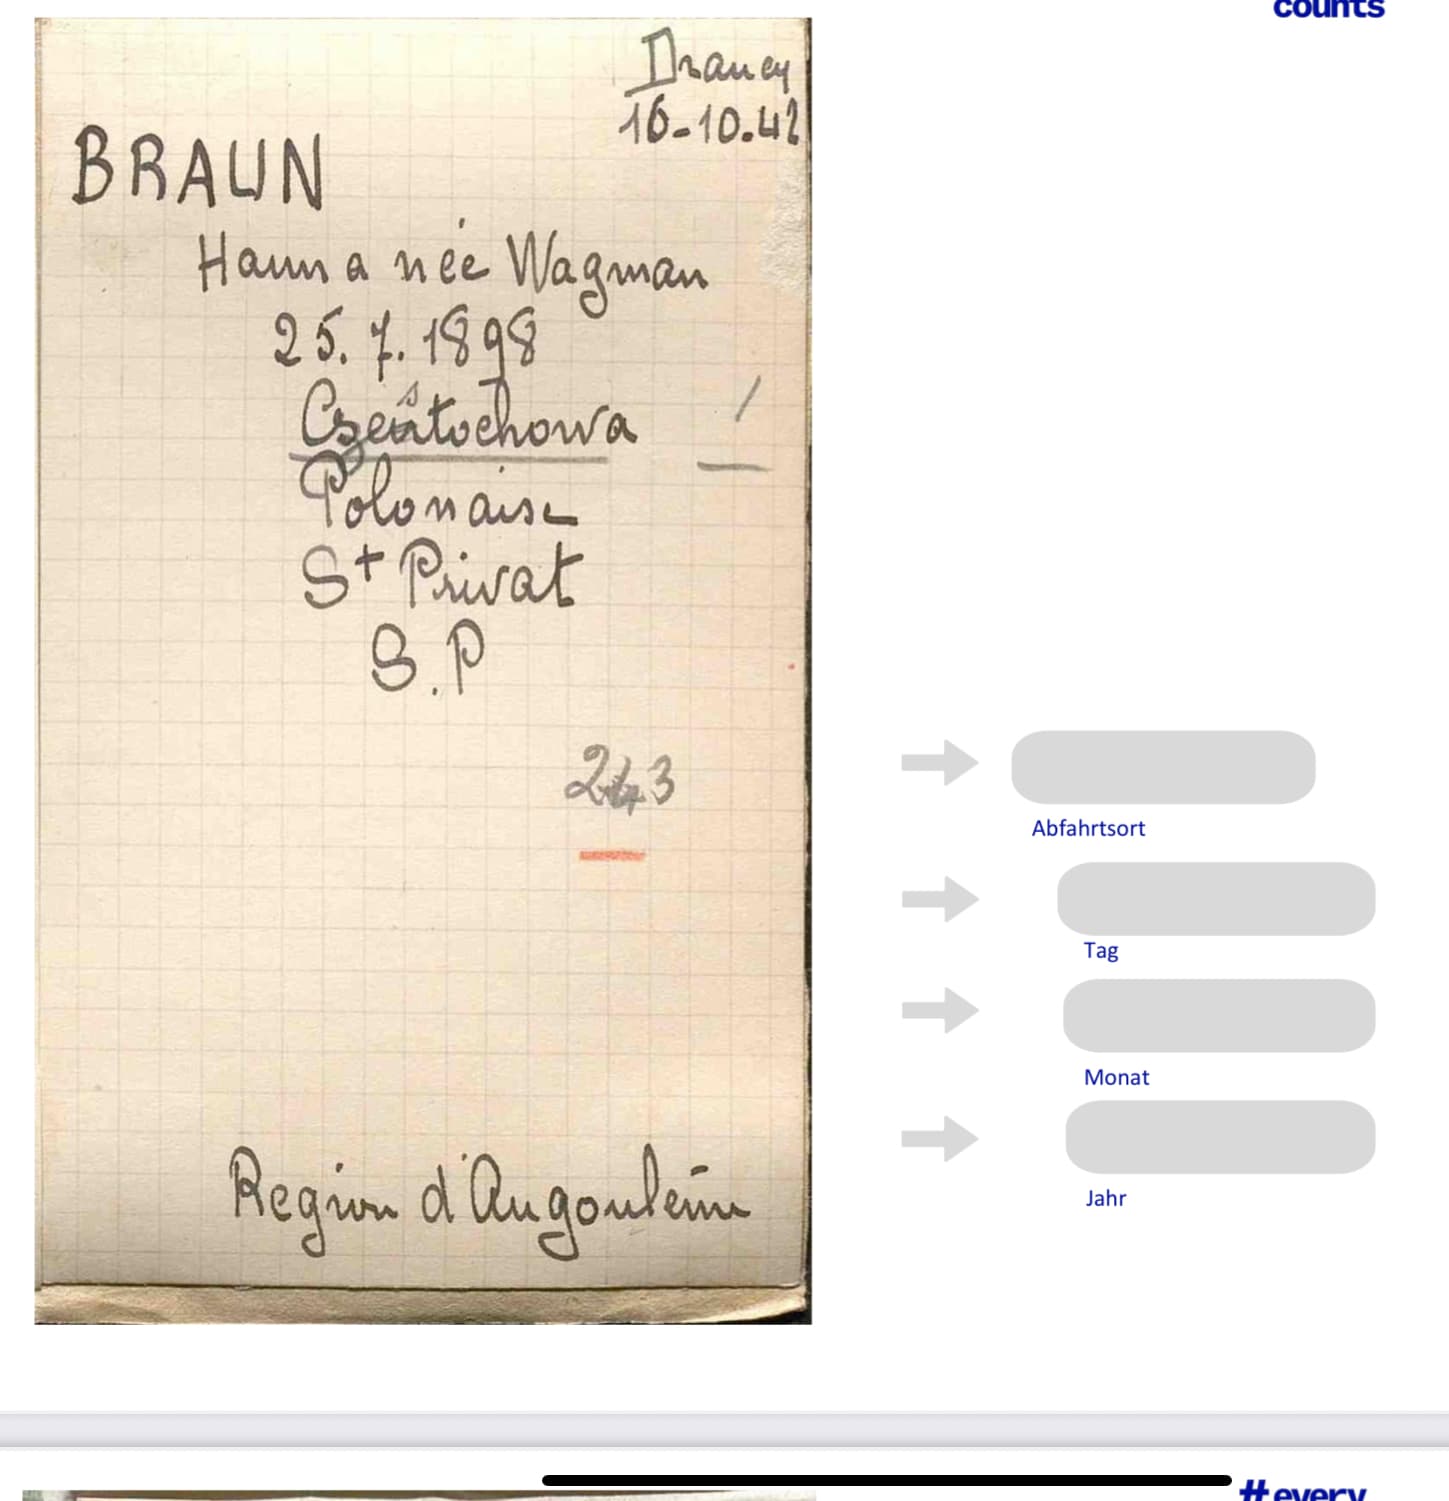 counts
Drancy
16-10.42
BRAUN
Hanna née Wagman
25.7.1898
Czenstochowa
Polonaise
St Privat
S.P
243
Region d'Angoulème
Abfahrtsort
Tag
Monat
Jahr
#every